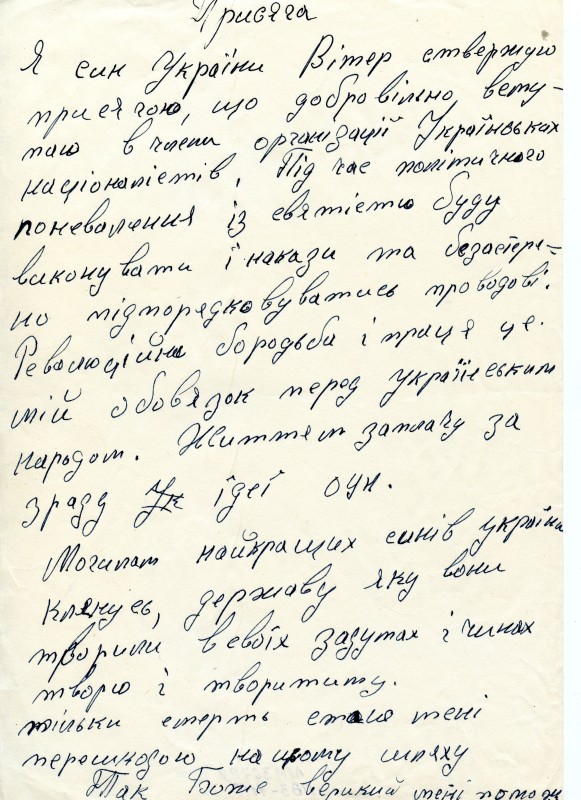 Присяга
Я син України Вітер ствержую
присягою, що добровільно всту-
паю в члени організації Українських
націоналістів, Під час політичного
поневалення із святістю буду
виконувати і накази та безастере=
но підпорядковуватись проводові.
Революційна бородьба і праця це
мій обовязок перед українським
народом. Життям заплачу за
зраду Ук ідеї оун.
Могилам найкращих синів україни
клянусь, державу яку вони
творили в своїх задумах і чинах
творю і творитиму.
тільки смерть стане мені
перешкодою на цьому шляху
Так Боже великий мені помож